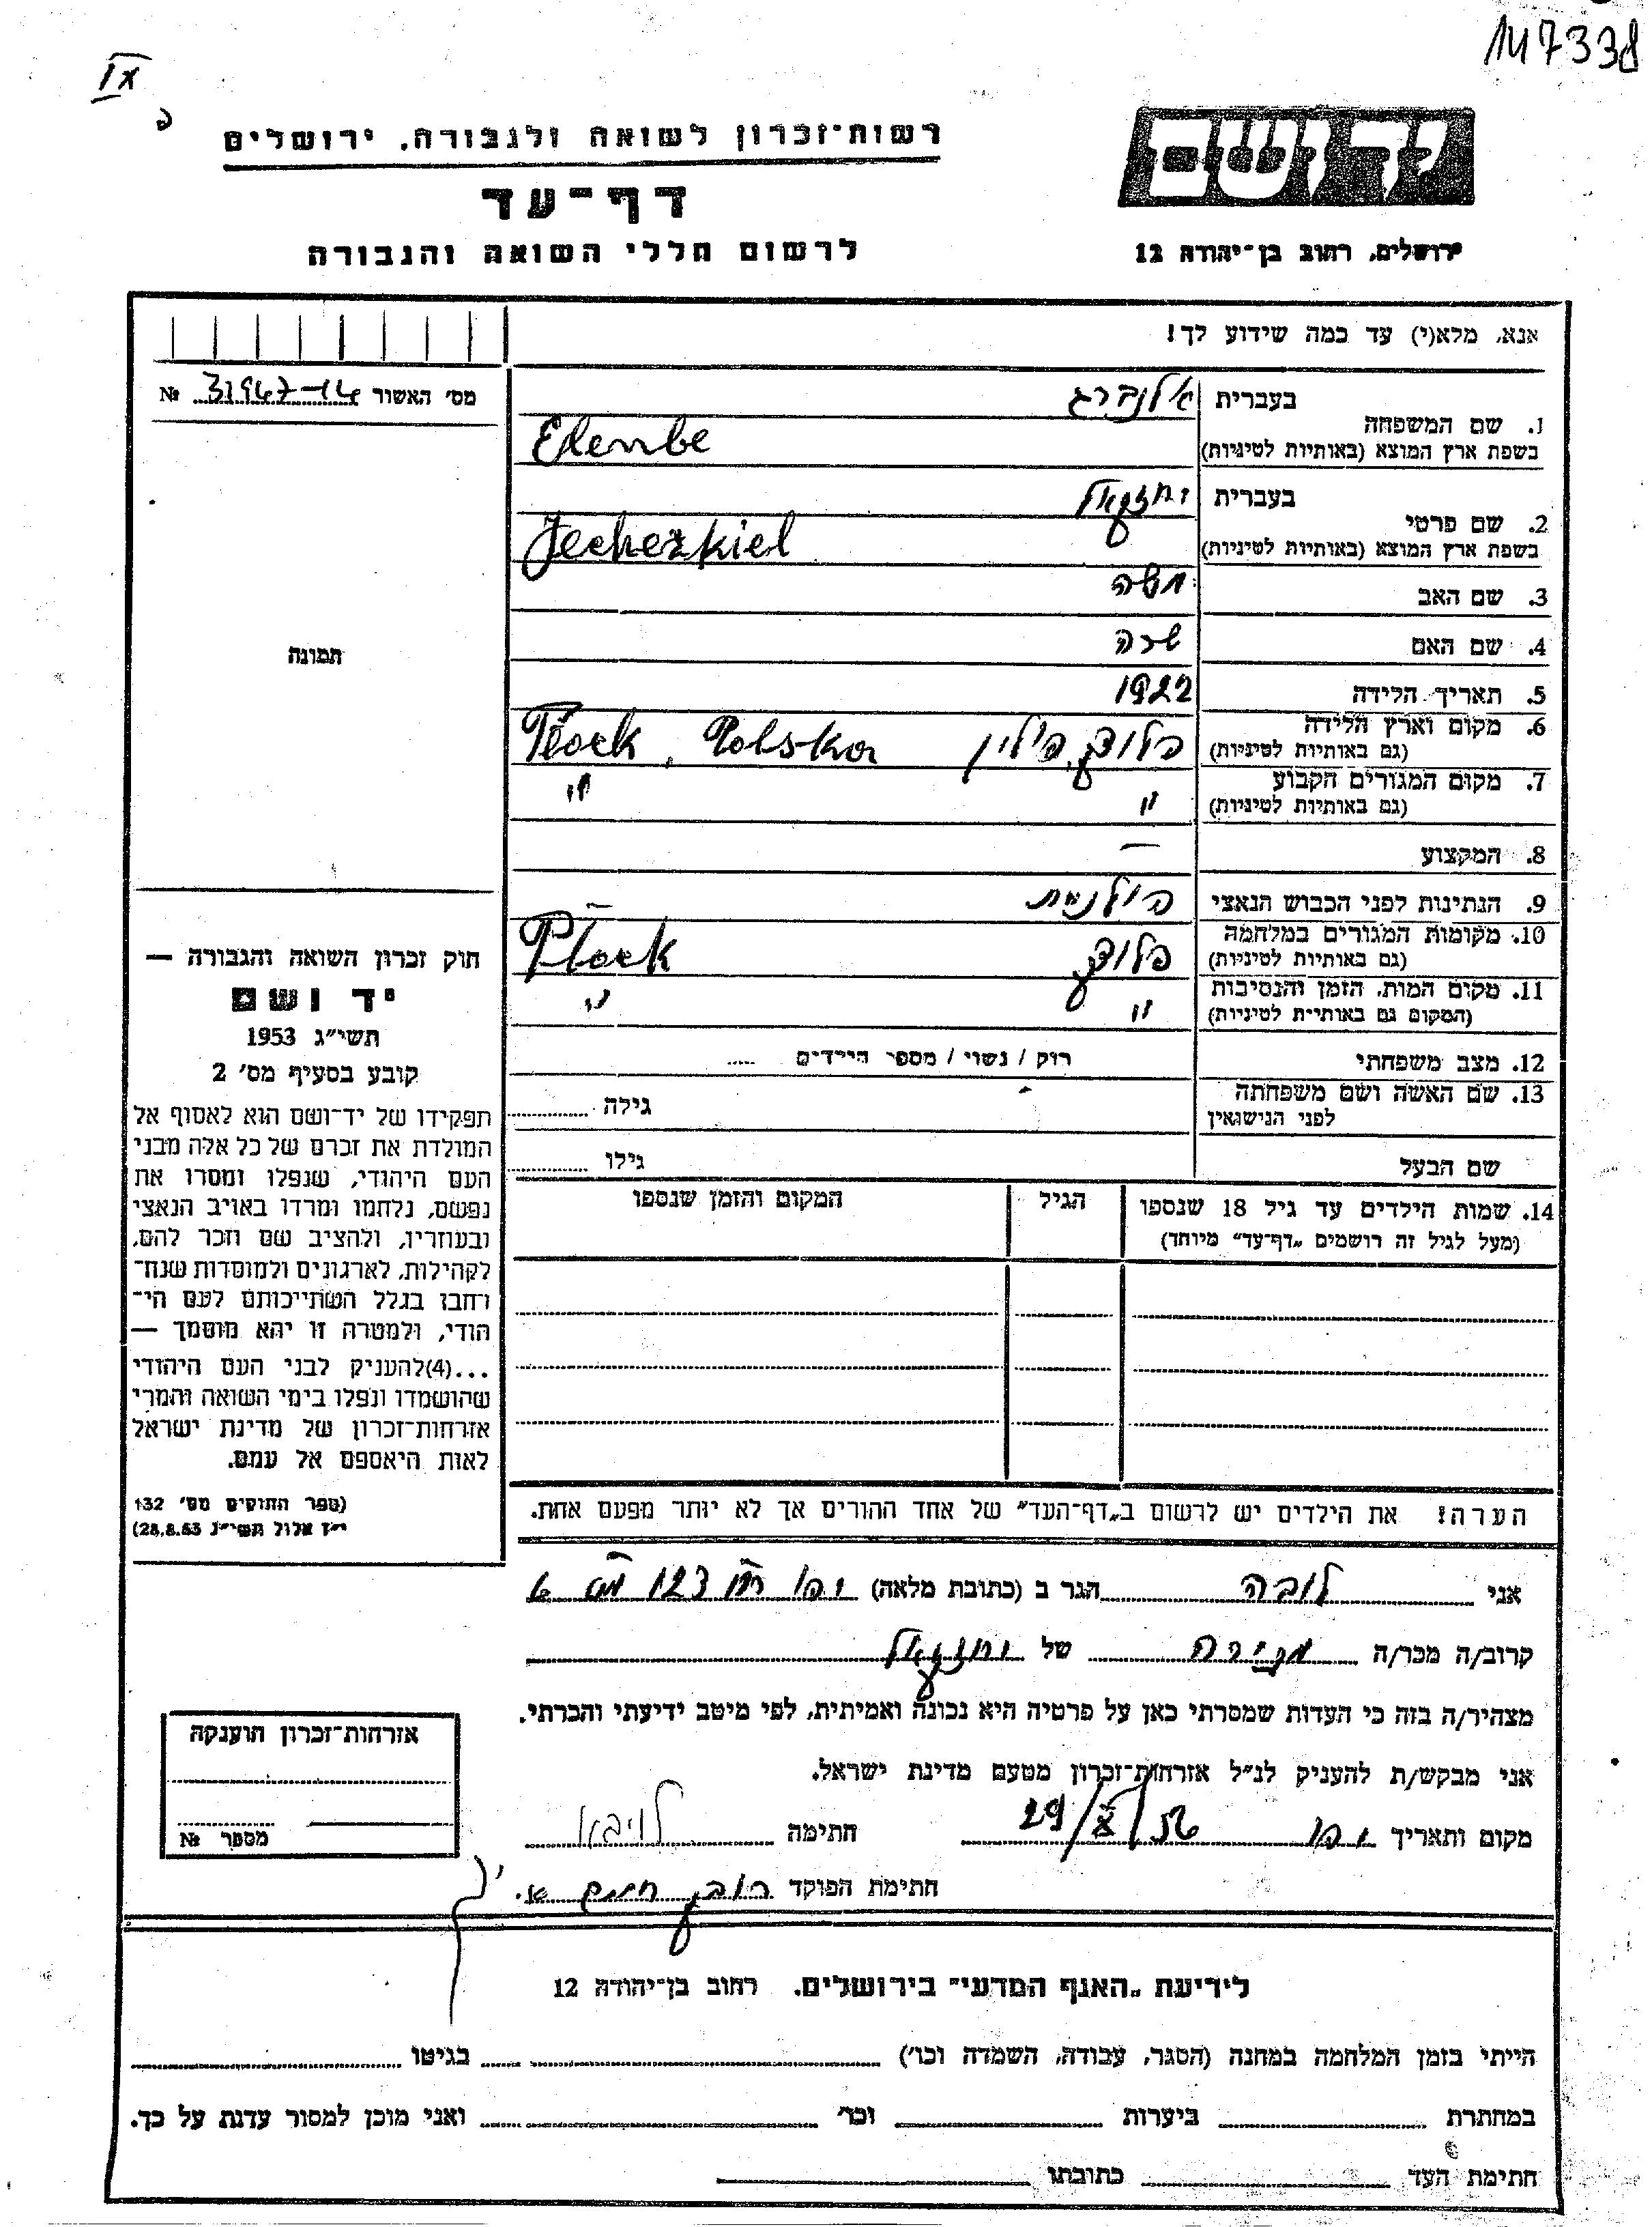 147338
IX
רשות־זכרון לשואה ולגבורה, ירושלים
יד ושם
דף־עד
לרשום חללי השואה והגבורה
ירושלים, רחוב בן־יהודה 12
אנא, מלא(י) עד כמה שידוע לך!
מס' האשור 31967-14 №
1. שם המשפחה
בעברית אלנברג
בשפת ארץ המוצא (באותיות לטיניות) Elenbe
2. שם פרטי
בעברית יחזקאל
בשפת ארץ המוצא (באותיות לטיניות) Jecheskiel
3. שם האב משה
4. שם האם שרה
תמונה
5. תאריך הלידה 1922
6. מקום וארץ הלידה
(גם באותיות לטיניות) פלוצק, פולין Płock, Polska
7. מקום המגורים הקבוע
(גם באותיות לטיניות) " "
8. המקצוע —
9. הנתינות לפני הכבוש הנאצי פולנית
10. מקומות המגורים במלחמה
(גם באותיות לטיניות) פלוצק Płock
11. מקום המות, הזמן והנסיבות
(המקום גם באותיות לטיניות) " "
12. מצב משפחתי רווק / נשוי / מספר הילדים .....
13. שם האשה ושם משפחתה
לפני הנישואין גילה
שם הבעל גילו
14. שמות הילדים עד גיל 18 שנספו
(מעל לגיל זה רושמים „דף־עד" מיוחד)
הגיל
המקום והזמן שנספו
חוק זכרון השואה והגבורה —
יד ושם
תשי"ג 1953
קובע בסעיף מס' 2
תפקידו של יד־ושם הוא לאסוף אל
המולדת את זכרם של כל אלה מבני
העם היהודי, שנפלו ומסרו את
נפשם, נלחמו ומרדו באויב הנאצי
ובעוזריו, ולהציב שם וזכר להם,
לקהילות, לארגונים ולמוסדות שנח־
רחבו בגלל השתייכותם לעם הי־
הודי, ולמטרה זו יהא מוסמך —
...(4)להעניק לבני העם היהודי
שהושמדו ונפלו בימי השואה והמרי
אזרחות־זכרון של מדינת ישראל
לאות היאספם אל עמם.
(ספר החוקים מס' 132
י"ז אלול תשי"ג 28.8.53)
הערה! את הילדים יש לרשום ב„דף־העד" של אחד ההורים אך לא יותר מפעם אחת.
אני לובה הגר ב (כתובת מלאה) יפו
קרוב/ה מכר/ה מכירה של יחזקאל
מצהיר/ה בזה כי העדות שמסרתי כאן על פרטיה היא נכונה ואמיתית, לפי מיטב ידיעתי והכרתי.
אני מבקש/ת להעניק לנ"ל אזרחות־זכרון מטעם מדינת ישראל.
מקום ותאריך יפו 29/X/56 חתימה
חתימת הפוקד
אזרחות־זכרון הוענקה
מספר №
לידיעת „האגף המדעי" בירושלים, רחוב בן־יהודה 12
הייתי בזמן המלחמה במחנה (הסגר, עבודה, השמדה וכו') בגיטו
במחתרת ביערות וכו' ואני מוכן למסור עדות על כך.
חתימת העד כתובתו